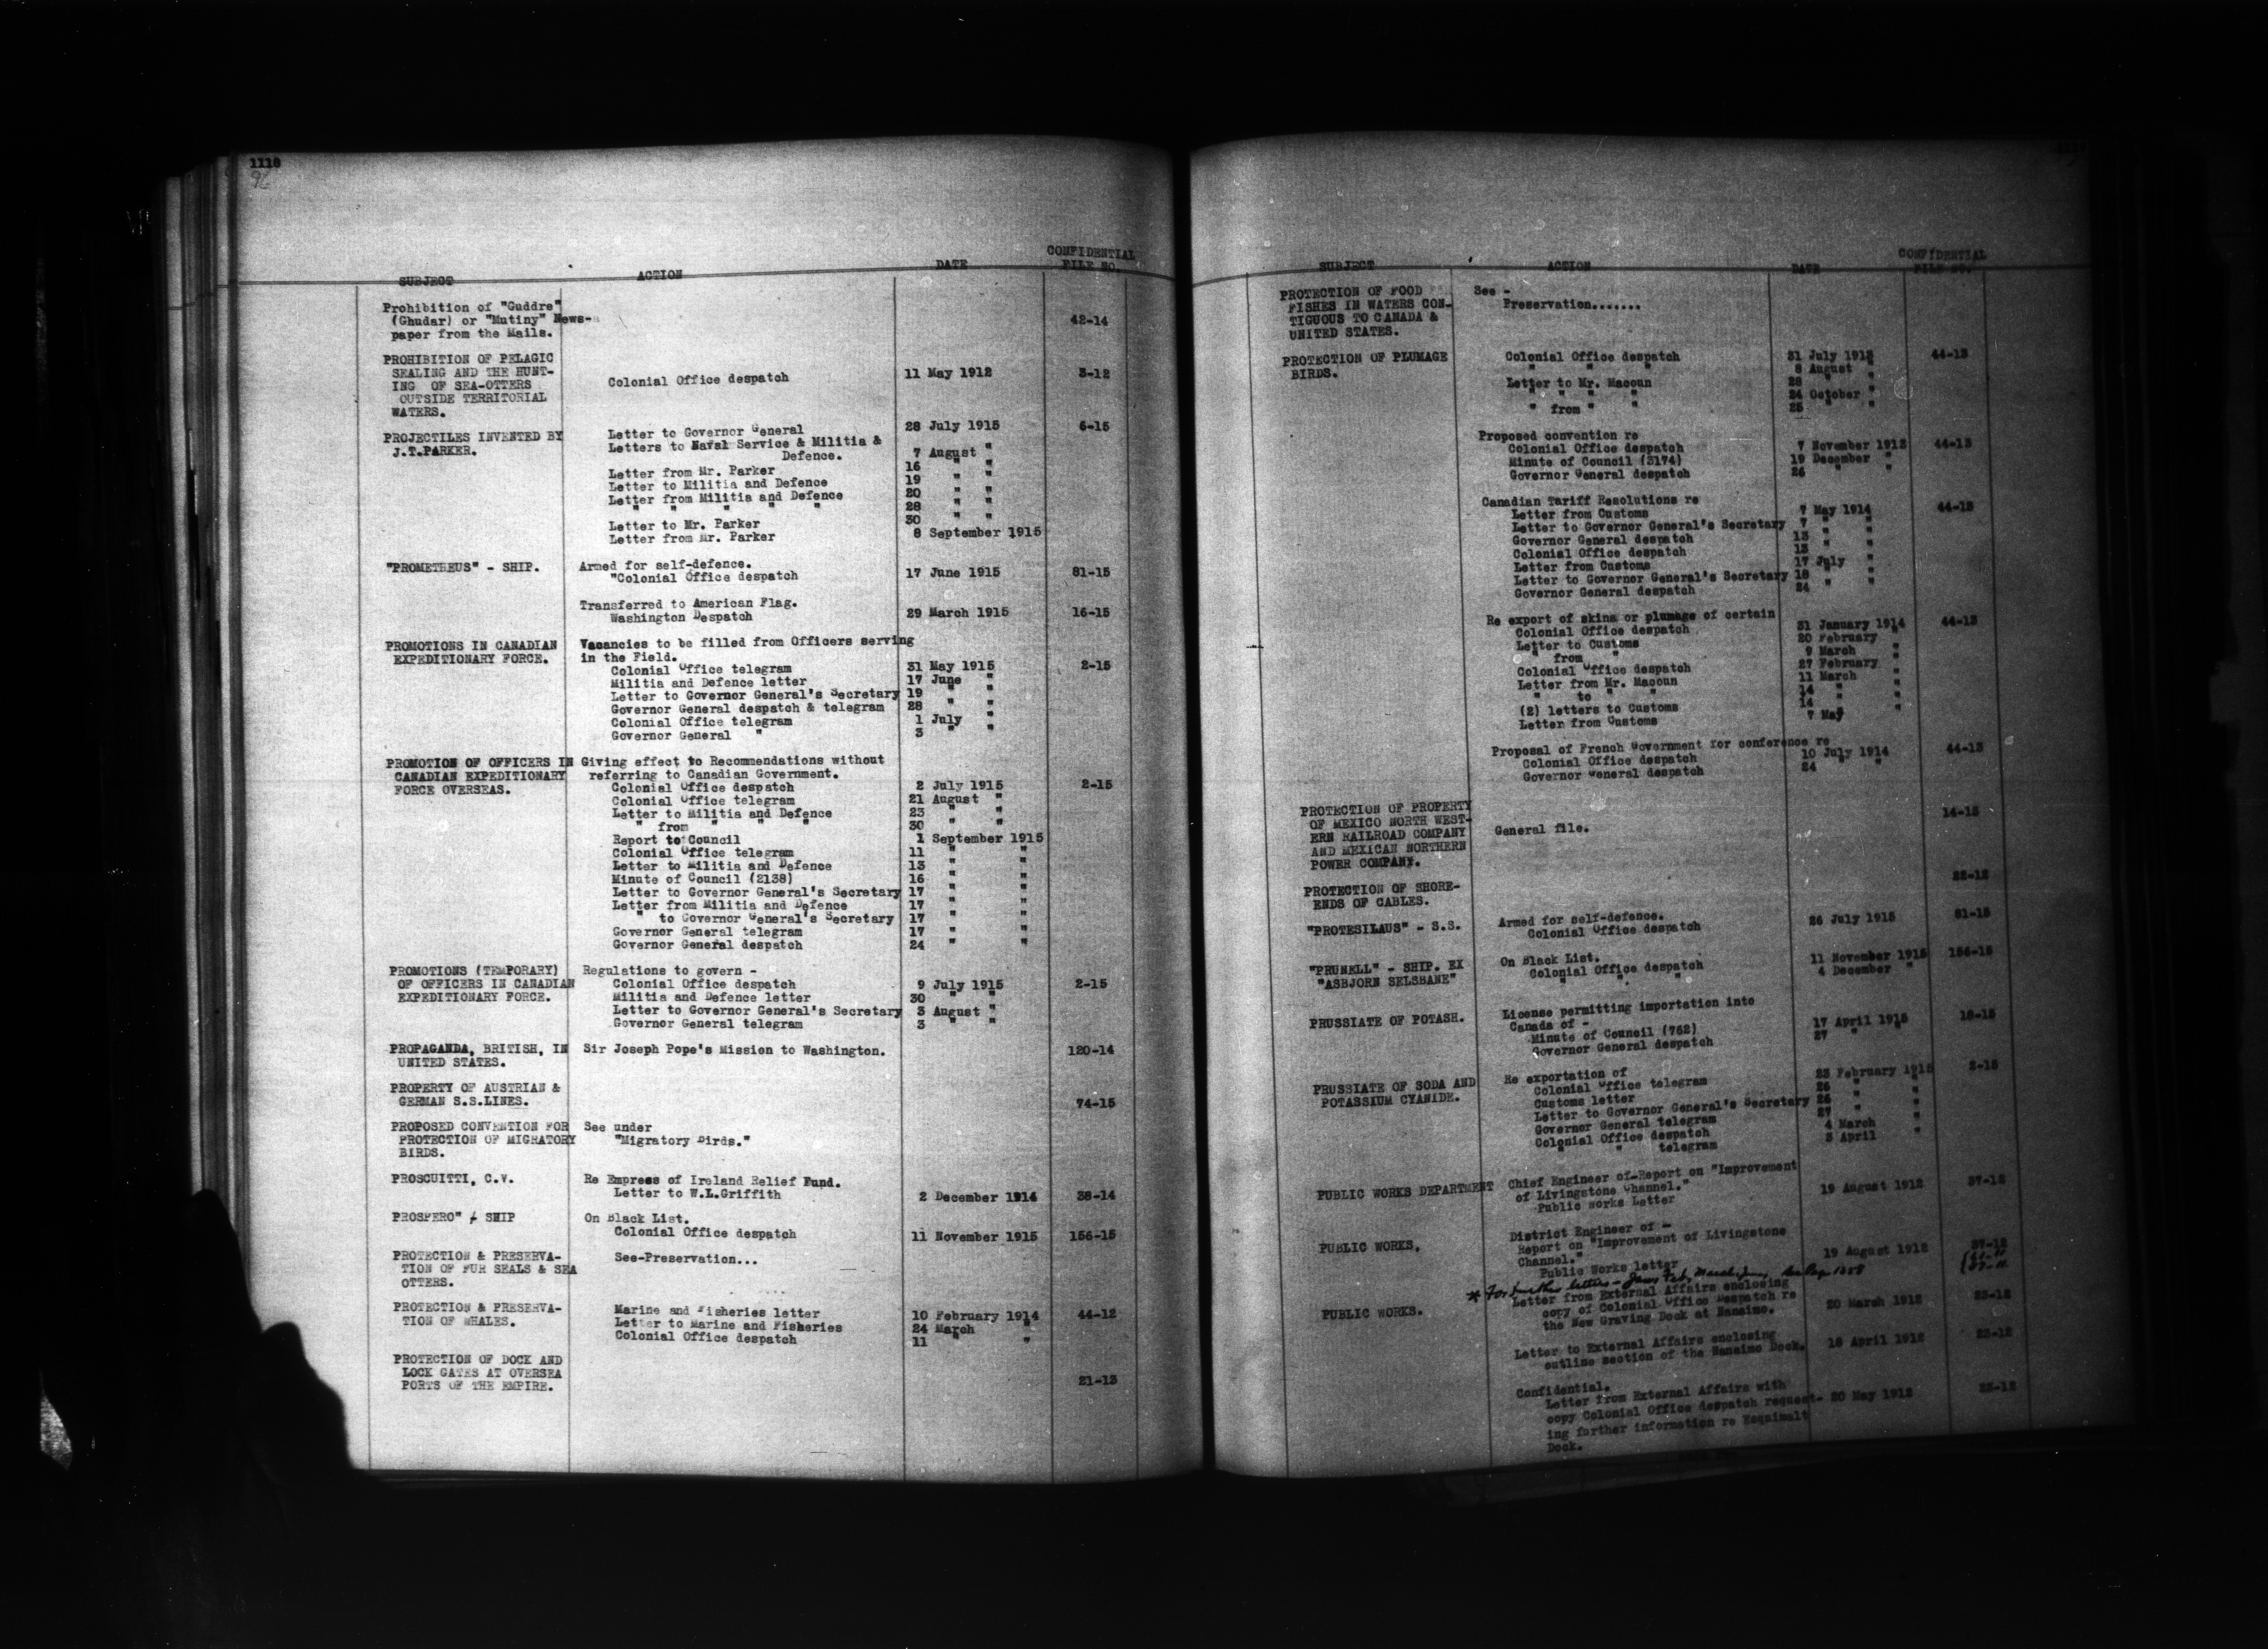 1118
96
SUBJECT ACTION DATE CONFIDENTIAL FILE NO.
Prohibition of "Guddre"
(Ghudar) or "Mutiny" News-
paper from the Mails. 42-14
PROHIBITION OF PELAGIC
SEALING AND THE HUNT-
ING OF SEA-OTTERS Colonial Office despatch 11 May 1912 3-12
OUTSIDE TERRITORIAL
WATERS.
PROJECTILES INVENTED BY Letter to Governor General 28 July 1915 6-15
J.T.PARKER. Letters to Naval Service & Militia &
Defence. 7 August "
Letter from Mr. Parker 16 " "
Letter to Militia and Defence 19 " "
Letter from Militia and Defence 20 " "
" " " " " 28 " "
Letter to Mr. Parker 30 " "
Letter from Mr. Parker 8 September 1915
"PROMETHEUS" - SHIP. Armed for self-defence.
"Colonial Office despatch 17 June 1915 81-15
Transferred to American Flag.
Washington Despatch 29 March 1915 16-15
PROMOTIONS IN CANADIAN Vacancies to be filled from Officers serving
EXPEDITIONARY FORCE. in the Field.
Colonial Office telegram 31 May 1915 2-15
Militia and Defence letter 17 June "
Letter to Governor General's Secretary 19 " "
Governor General despatch & telegram 28 " "
Colonial Office telegram 1 July "
Governor General " 3 " "
PROMOTION OF OFFICERS IN Giving effect to Recommendations without
CANADIAN EXPEDITIONARY referring to Canadian Government.
FORCE OVERSEAS. Colonial Office despatch 2 July 1915 2-15
Colonial Office telegram 21 August "
Letter to Militia and Defence 23 " "
" from " " " 30 " "
Report to Council 1 September 1915
Colonial Office telegram 11 " "
Letter to Militia and Defence 13 " "
Minute of Council (2138) 16 " "
Letter to Governor General's Secretary 17 " "
Letter from Militia and Defence 17 " "
" to Governor General's Secretary 17 " "
Governor General telegram 17 " "
Governor General despatch 24 " "
PROMOTIONS (TEMPORARY) Regulations to govern -
OF OFFICERS IN CANADIAN Colonial Office despatch 9 July 1915 2-15
EXPEDITIONARY FORCE. Militia and Defence letter 30 " "
Letter to Governor General's Secretary 3 August "
Governor General telegram 3 " "
PROPAGANDA, BRITISH, IN Sir Joseph Pope's Mission to Washington. 120-14
UNITED STATES.
PROPERTY OF AUSTRIAN &
GERMAN S.S.LINES. 74-15
PROPOSED CONVENTION FOR See under
PROTECTION OF MIGRATORY "Migratory Birds."
BIRDS.
PROSCUITTI, C.V. Re Empress of Ireland Relief Fund.
Letter to W.L.Griffith 2 December 1914 38-14
PROSPERO" - SHIP On Black List.
Colonial Office despatch 11 November 1915 156-15
PROTECTION & PRESERVA- See-Preservation...
TION OF FUR SEALS & SEA
OTTERS.
PROTECTION & PRESERVA- Marine and Fisheries letter 10 February 1914 44-12
TION OF WHALES. Letter to Marine and Fisheries 24 March "
Colonial Office despatch 11 " "
PROTECTION OF DOCK AND
LOCK GATES AT OVERSEA
PORTS OF THE EMPIRE. 21-13
SUBJECT ACTION DATE CONFIDENTIAL FILE NO.
PROTECTION OF FOOD See -
FISHES IN WATERS CON- Preservation.......
TIGUOUS TO CANADA &
UNITED STATES.
PROTECTION OF PLUMAGE Colonial Office despatch 31 July 1913 44-13
BIRDS. " " " 8 August "
Letter to Mr. Macoun 28 " "
" " " " 24 October "
" from " " 25 " "
Proposed convention re
Colonial Office despatch 7 November 1912 44-13
Minute of Council (3174) 19 December "
Governor General despatch 26 " "
Canadian Tariff Resolutions re
Letter from Customs 7 May 1914 44-13
Letter to Governor General's Secretary 7 " "
Governor General despatch 13 " "
Colonial Office despatch 13 " "
Letter from Customs 17 July "
Letter to Governor General's Secretary 18 " "
Governor General despatch 24 " "
Re export of skins or plumage of certain
Colonial Office despatch 31 January 1914 44-13
Letter to Customs 20 February "
" from " 9 March "
Colonial Office despatch 27 February "
Letter from Mr. Macoun 11 March "
" to " " 14 " "
(2) letters to Customs 14 " "
Letter from Customs 7 May "
Proposal of French Government for conference re
Colonial Office despatch 10 July 1914 44-13
Governor General despatch 24 " "
PROTECTION OF PROPERTY 14-13
OF MEXICO NORTH WEST- General file.
ERN RAILROAD COMPANY
AND MEXICAN NORTHERN
POWER COMPANY.
PROTECTION OF SHORE- 22-12
ENDS OF CABLES.
"PROTESILAUS" - S.S. Armed for self-defence.
Colonial Office despatch 26 July 1915 81-15
"PRUNELL" - SHIP. EX On Black List. 11 November 1915 156-15
"ASBJORN SELSBANE" Colonial Office despatch 4 December "
" " "
PRUSSIATE OF POTASH. License permitting importation into
Canada of - 17 April 1915 18-15
Minute of Council (762) 27 " "
Governor General despatch
PRUSSIATE OF SODA AND Re exportation of 23 February 1915 2-15
POTASSIUM CYANIDE. Colonial Office telegram 26 " "
Customs letter 26 " "
Letter to Governor General's Secretary 27 " "
Governor General telegram 4 March "
Colonial Office despatch 3 April "
" " telegram
PUBLIC WORKS DEPARTMENT Chief Engineer of-Report on "Improvement
of Livingstone Channel." 19 August 1912 37-12
Public Works Letter
PUBLIC WORKS, District Engineer of -
Report on "Improvement of Livingstone
Channel." 19 August 1912 37-12
Public Works letter
* For further letters - Jany Feb, March, June, See Page 1058
PUBLIC WORKS. Letter from External Affairs enclosing
copy of Colonial Office Despatch re 20 March 1912 23-12
the New Graving Dock at Nanaimo.
Letter to External Affairs enclosing
outline section of the Nanaimo Dock. 18 April 1912 23-12
Confidential.
Letter from External Affairs with
copy Colonial Office despatch request- 20 May 1912 23-12
ing further information re Esquimalt
Dock.